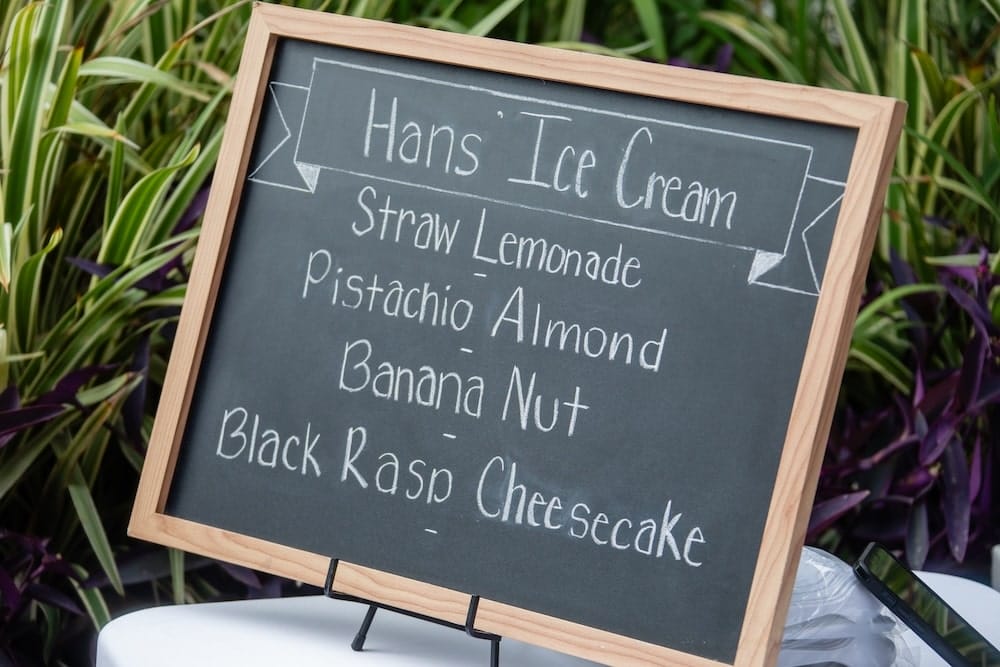 Hans' Ice Cream
Straw Lemonade
-
Pistachio Almond
-
Banana Nut
-
Black Rasp Cheesecake
-